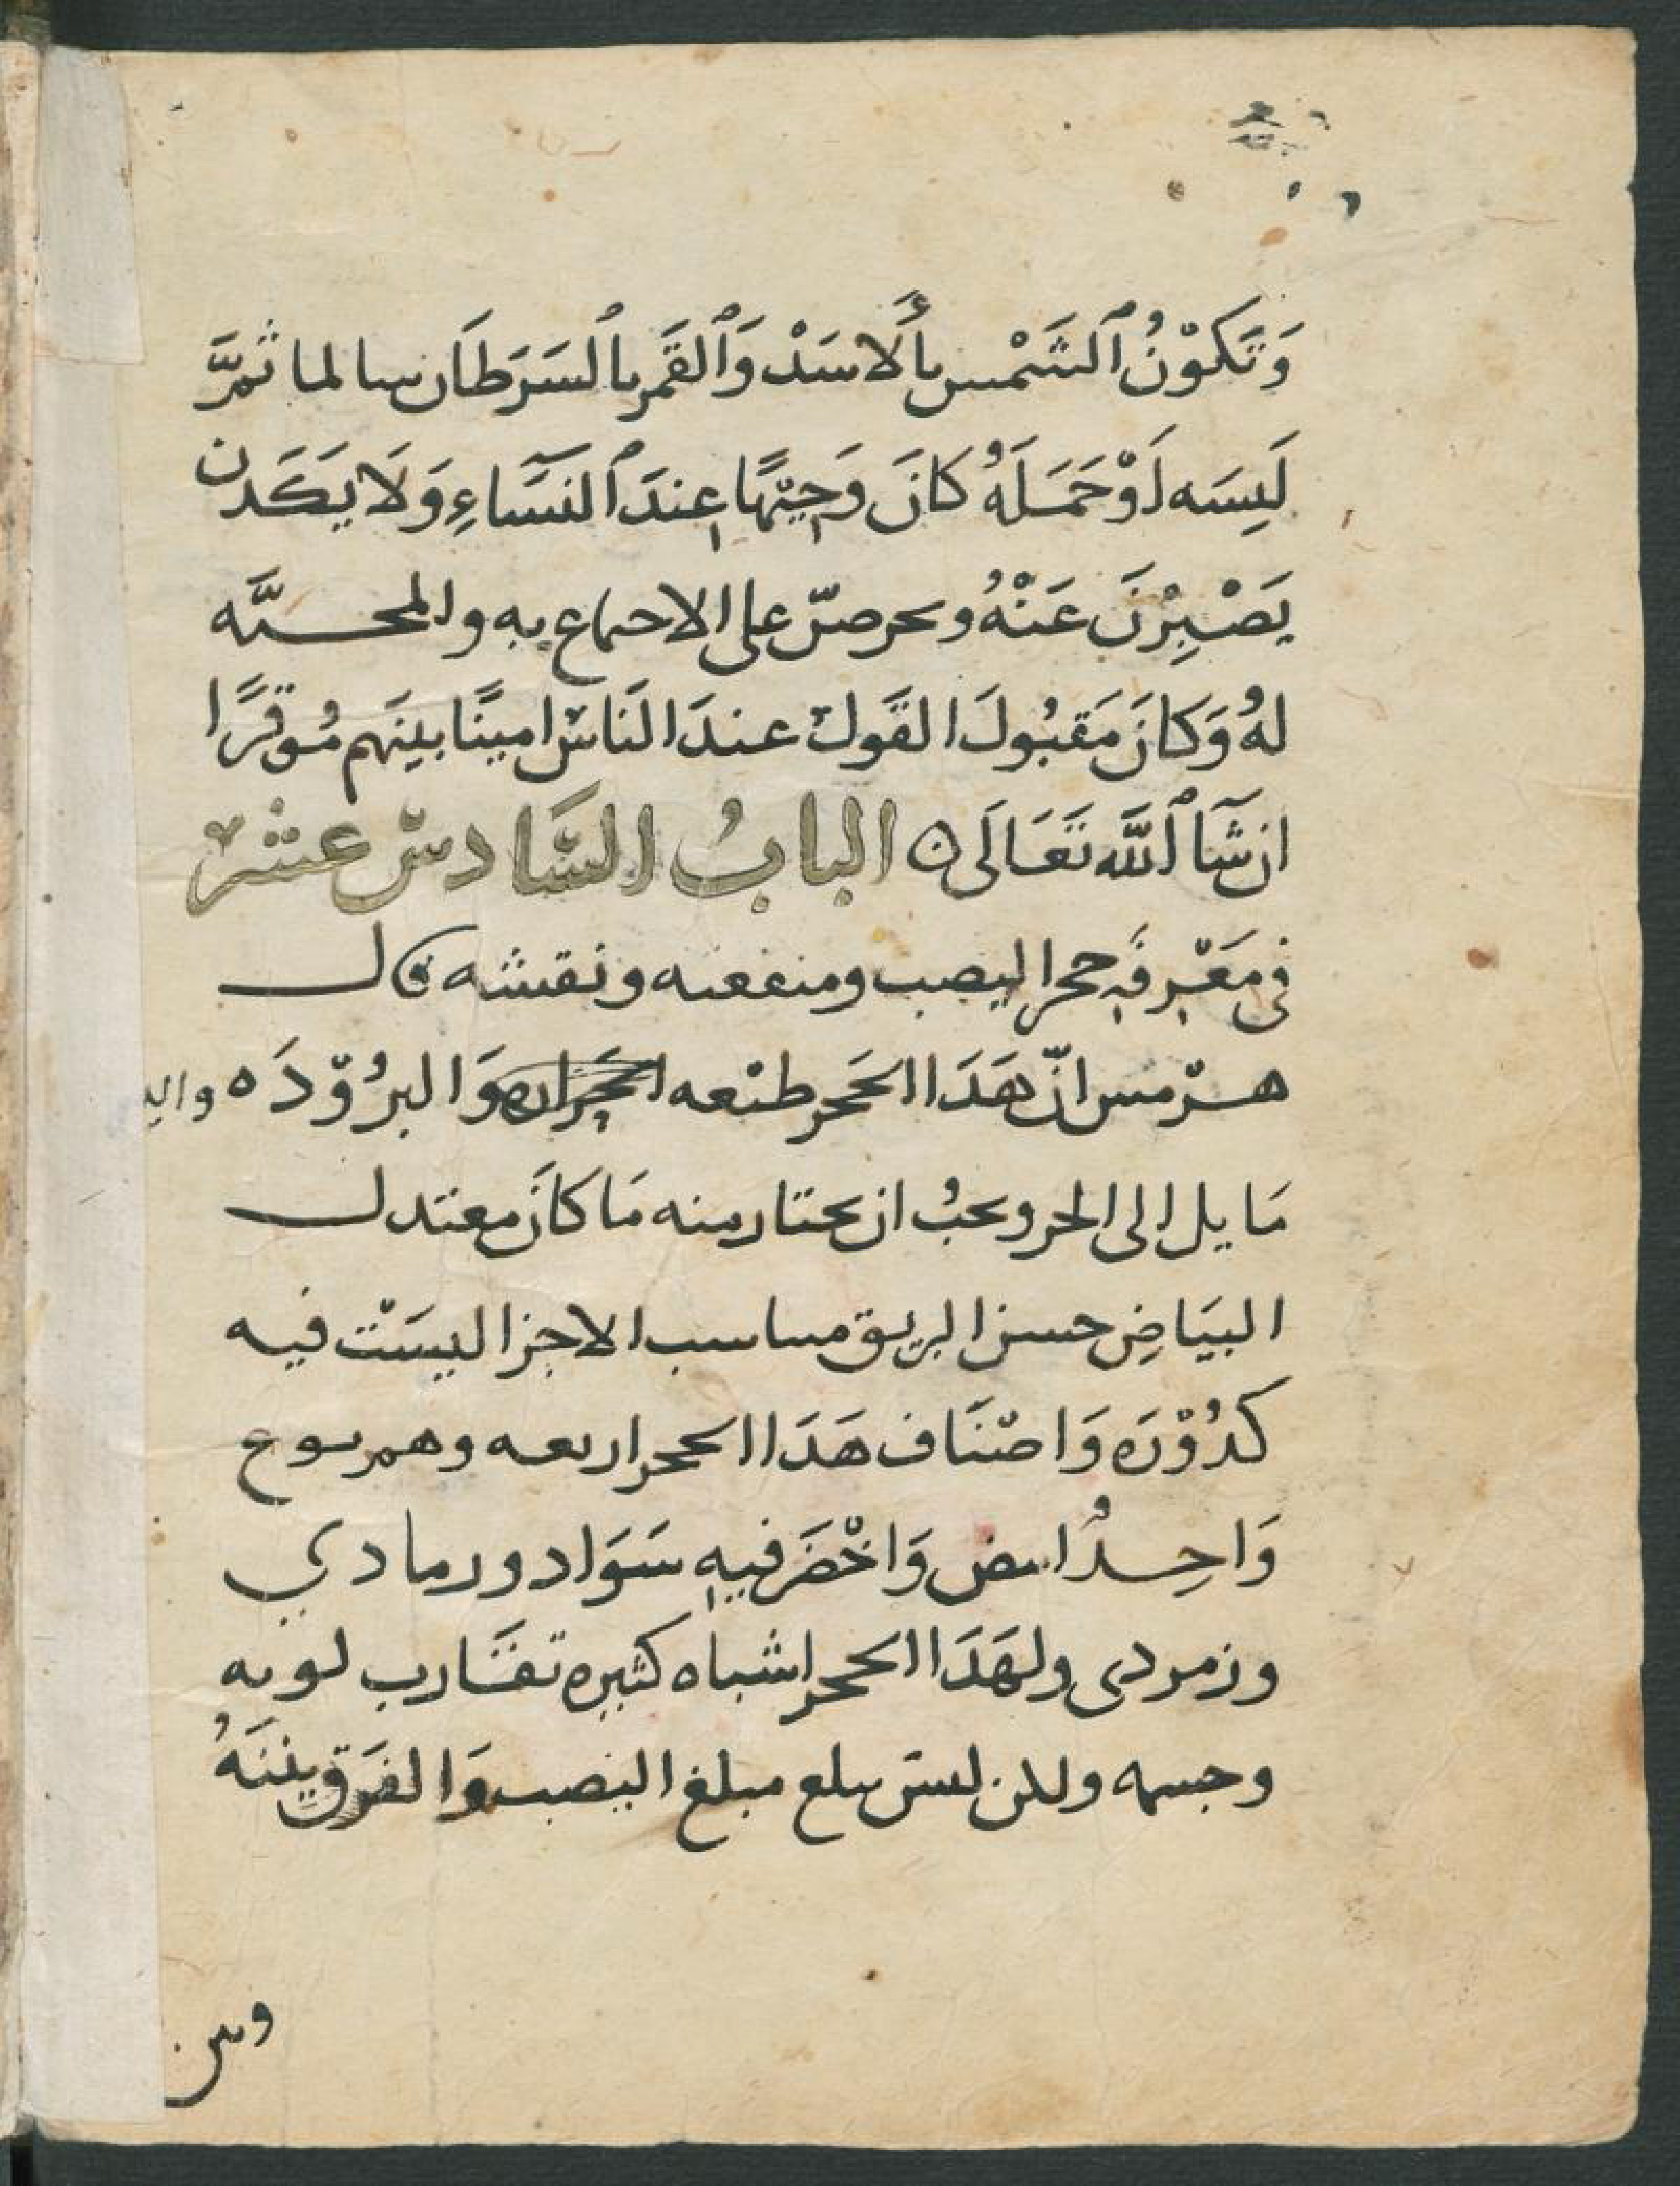 وَتَكوْنُ ٱلشَمْس بأَلاسَدْ وَٱلقَمَر بٱلسَرَطَان سالما ثمرَّ
لَبِسَه أَوْ حَمَلَهُ كانَ وَجِيْهًا عِندَ ٱلنسَآءِ وَلَا يكَدن
يَصْبِرْنَ عَنْهُ ويحرصنّ على الاجماع به والمحبَّه
لهُ وَكانَ مَقبُولَ القَول عندَ النَاسْ امينًا بينَهم مُوقرًا
ان شَآ ٱللَّه تَعَالَى ٥ البابُ السَّادسْ عشرْ
في مَعْرِفَةِ حجر اليصب ومنفعته ونقشه قال
هرْمس انّ هَذَا الحَجر طبْعه الحَرَاره وَالبرُوْدَه واليـ
مَايل الى الحر ويجبُ ان يختار منه مَا كانَ معتدل
البيَاضِ حسن البريق مناسب الاجزا ليسَتْ فيه
كدُوْرَه وَاصْنَاف هَذَا الحجر اربعه وهم نوع
وَاحِدُ ابيض وَاخْضَر فيهِ سَوَاد ورمادي
وزمردى ولهَذَا الحجر اشباه كثيره تقَارب لونه
وجسمه ولكن ليسَ يبلغ مبلغ اليصب وَالفَرَق بينَهُ
وبين